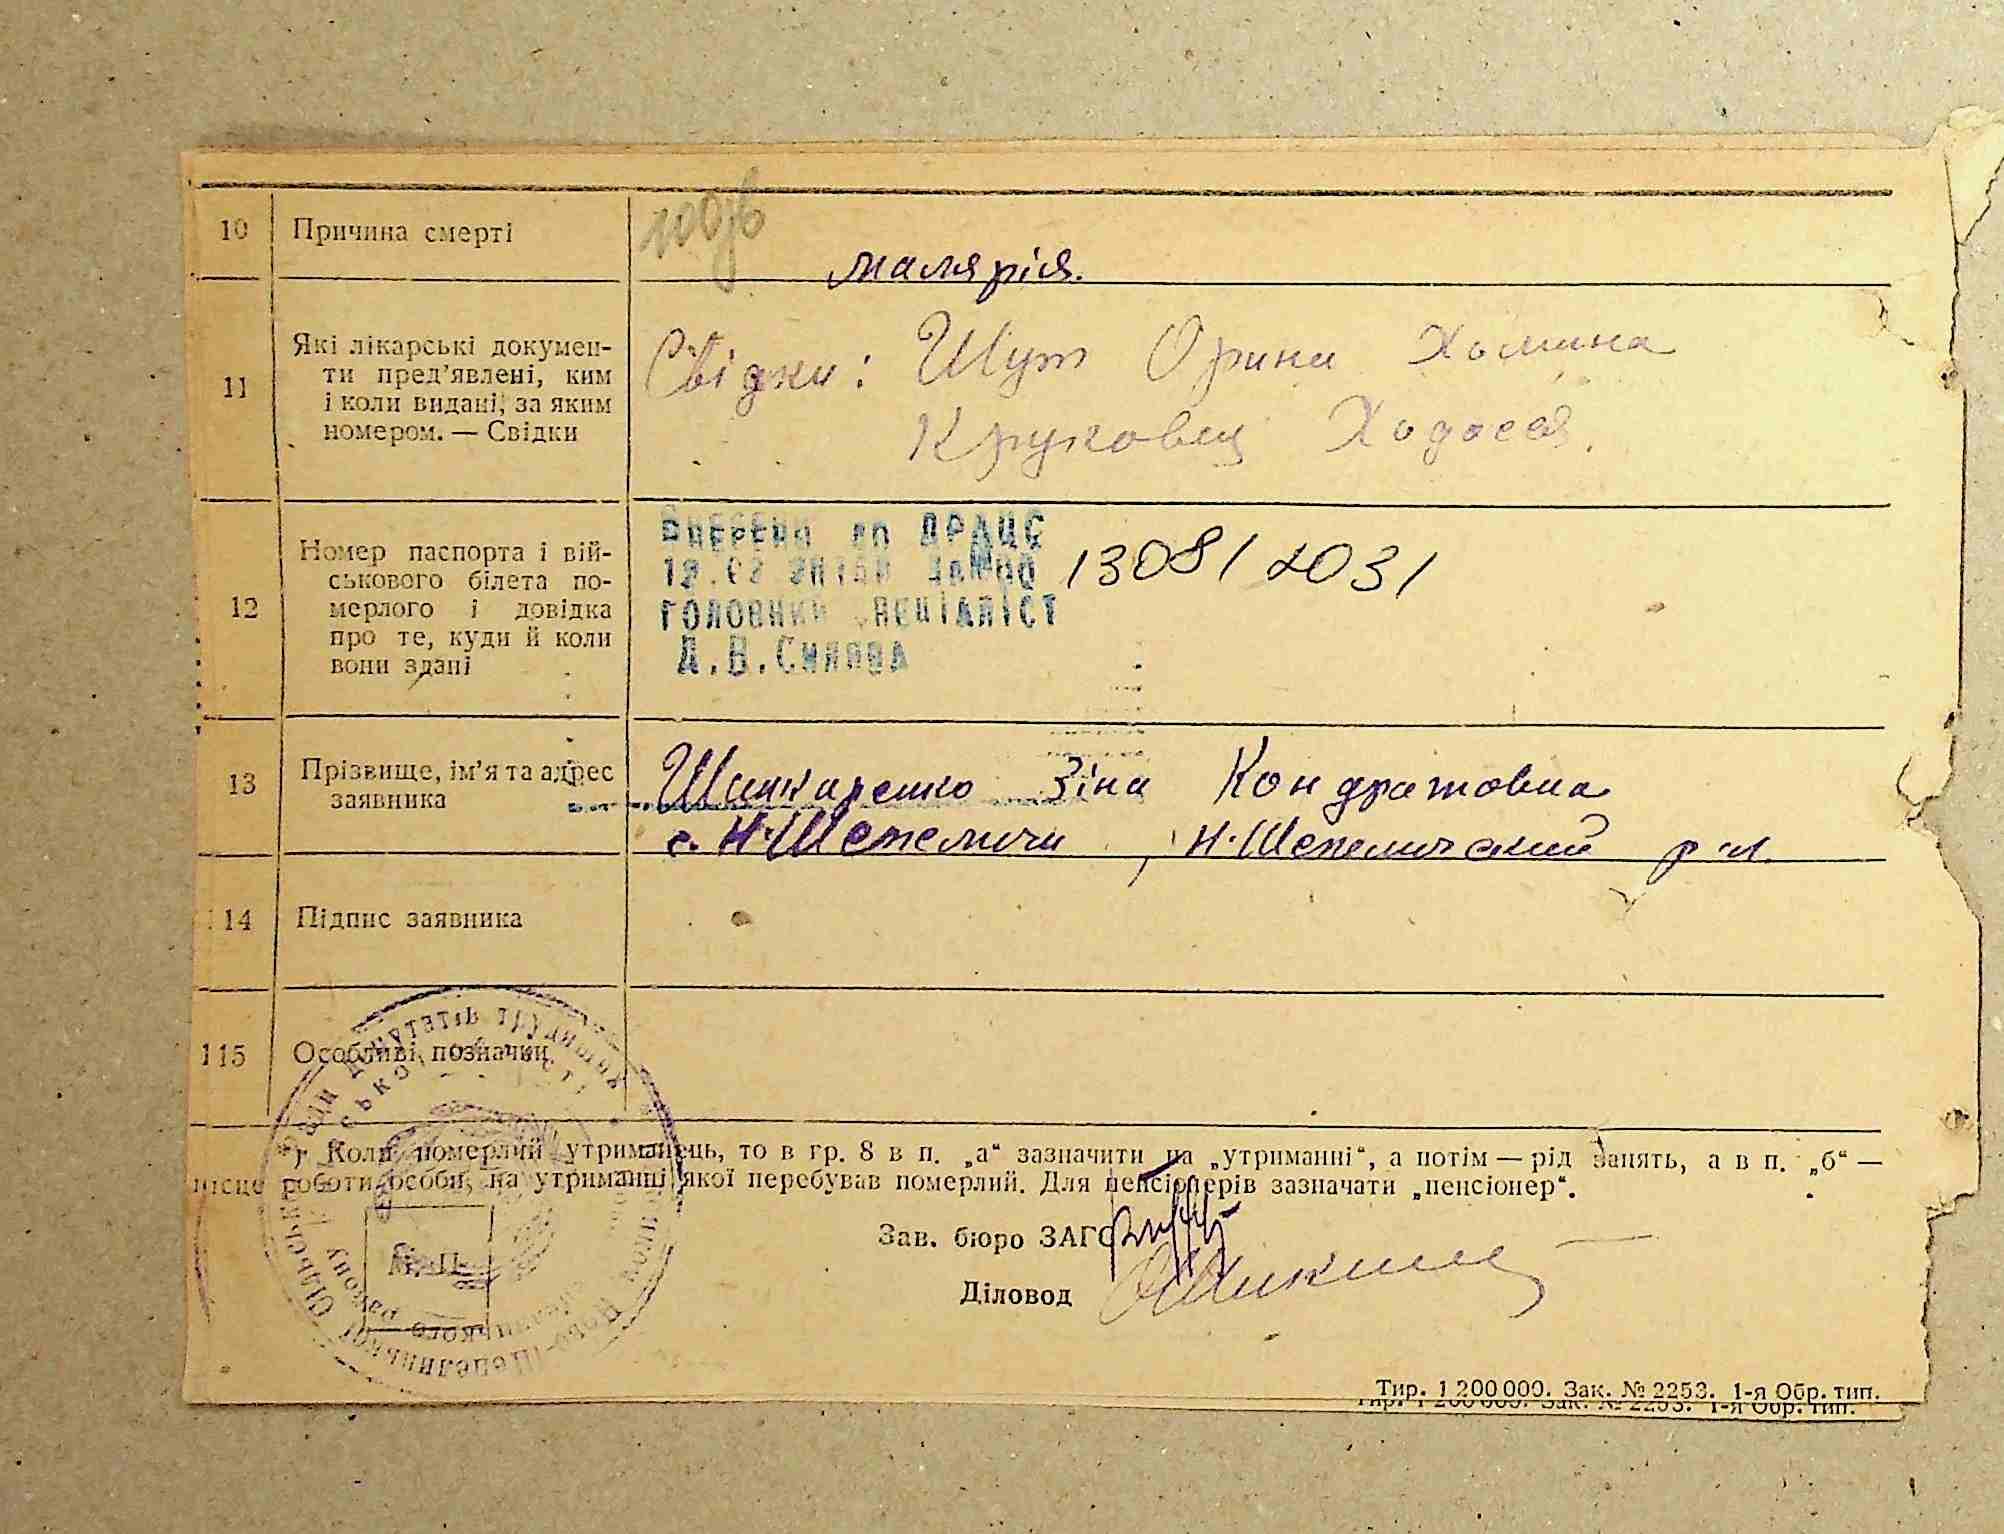 10 Причина смерті
малярія.
11 Які лікарські докумен-
ти пред’явлені, ким
і коли видані, за яким
номером. — Свідки
Свідки: Шут Орина Хомина
Круковец Ходося.
12 Номер паспорта і вій-
ськового білета по-
мерлого і довідка
про те, куди й коли
вони здані
Внесено до ДРАЦС
головний спеціаліст
Д.В.
13081 2031
13 Прізвище, ім’я та адрес
заявника
Шинкаренко Зіна Кондратовна
с. Н-Шепеличи, Н-Шепеличский р-н.
114 Підпис заявника
115 Особливі позначки
Коли померлий утриманець, то в гр. 8 в п. „а“ зазначити на „утриманні“, а потім — рід занять, а в п. „б“ —
місце роботи особи, на утриманні якої перебував померлий. Для пенсіонерів зазначати „пенсіонер“.
Зав. бюро ЗАГС
Діловод
М. П.
Тир. 1 200 000. Зак. № 2253. 1-я Обр. тип.
Тир. 1 200 000. Зак. № 2253. 1-я Обр. тип.